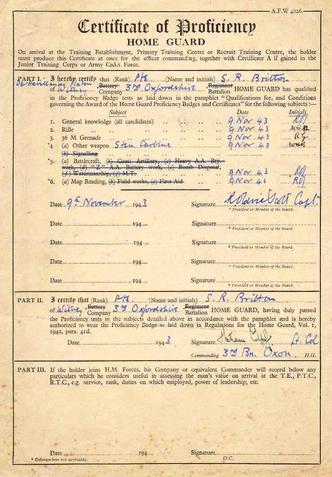 A.F.W 4026.
Certificate of Proficiency
HOME GUARD
On arrival at the Training Establishment, Primary Training Centre or Recruit Training Centre, the holder
must produce this Certificate at once for the officer commanding, together with Certificate A if gained in the
Junior Training Corps or Army Cadet Force.
PART I. I hereby certify that (Rank) Pte (Name and initials) S. R. Britton
of Witney Battery Company 3rd Oxfordshire Regiment Battalion HOME GUARD has qualified
in the Proficiency Badge tests as laid down in the pamphlet "Qualifications for, and Conditions
governing the Award of the Home Guard Proficiency Badges and Certificates" for the following subjects:—
Subject Date Initials
1. General knowledge (all candidates) 9 Nov 43
2. Rifle 9 Nov 43
3. 36 M Grenade 9 Nov 43
*4. (a) Other weapon Sten Carbine 9 Nov 43
(b) Signalling
*5. (a) Battlecraft, (b) Coast Artillery, (c) Heavy A.A. Bty.
work, (d) "Z" A.A. Battery work, (e) Bomb Disposal,
(f) Watermanship, (g) M.T. 9 Nov 43
*6. (a) Map Reading, (b) Field works, (c) First Aid 9 Nov 43
Date 9th November 1943 Signature Capt
* President or Member of the Board.
Date 194 Signature
* President or Member of the Board.
Date 194 Signature
* President or Member of the Board.
Date 194 Signature
* President or Member of the Board.
Date 194 Signature
* President or Member of the Board.
PART II. I certify that (Rank) Pte. (Name and initials) S. R. Britton
of Witney Battery Company 3rd Oxfordshire Regiment Battalion HOME GUARD, having duly passed
the Proficiency tests in the subjects detailed above in accordance with the pamphlet and is hereby
authorized to wear the Proficiency Badge as laid down in Regulations for the Home Guard, Vol. 1,
1942, para. 41d.
Date 1943 Signature Lt. Col
Commanding 3rd Bn. Oxon H.G.
PART III. If the holder joins H.M. Forces, his Company or equivalent Commander will record below any
particulars which he considers useful in assessing the man's value on arrival at the T.E., P.T.C.,
R.T.C., e.g. service, rank, duties on which employed, power of leadership, etc.
Date 194 Signature
* Delete where not applicable. O.C.